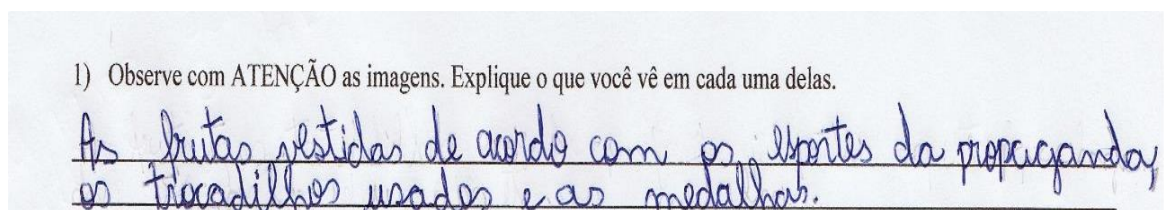 1) Observe com ATENÇÃO as imagens. Explique o que você vê em cada uma delas.
As frutas vestidas de acordo com os esportes da propaganda,
os trocadilhos usados e as medalhas.